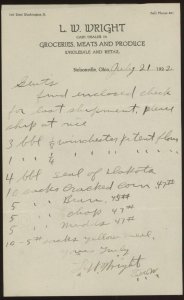 L. W. WRIGHT
CASH DEALER IN
GROCERIES, MEATS AND PRODUCE
WHOLESALE AND RETAIL
Nelsonville, Ohio, July 21 1922
Gents
find enclosed check
for last shipment, please
ship at once
3 bbl Winchester patent flour
1 " " " "
4 bbl seal of Dakota
10 sacks Cracked Corn 47#
5 " Bran 45#
5 " Chop 47#
5 " 47#
10 - 5# sacks yellow meal
yours Truly
L W Wright